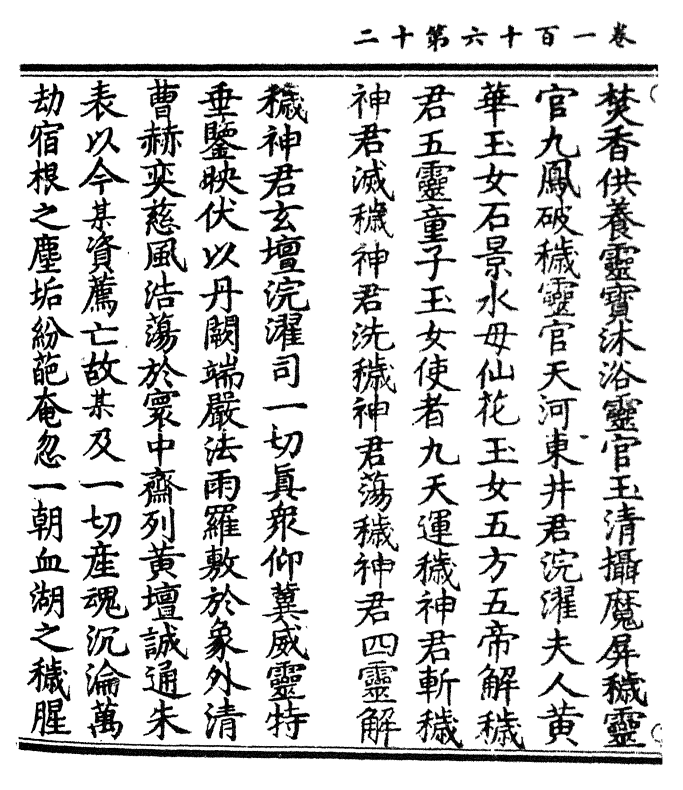 卷一百十六第十二
焚香供養靈寶沐浴靈官玉清攝魔屏穢靈
官九鳳破穢靈官天河東井君浣濯夫人黃
華玉女石景水母仙花玉女五方五帝解穢
君五靈童子玉女使者九天運穢神君斬穢
神君滅穢神君洗穢神君蕩穢神君四靈解
穢神君玄壇浣濯司一切真眾仰冀威靈特
垂鑒映伏以丹闕端嚴法雨羅敷於象外清
曹赫奕慈風浩蕩於寰中齋列黃壇誠通朱
表以今某資薦亡故某及一切產魂沉淪萬
劫宿根之塵垢紛葩奄忽一朝血湖之穢腥